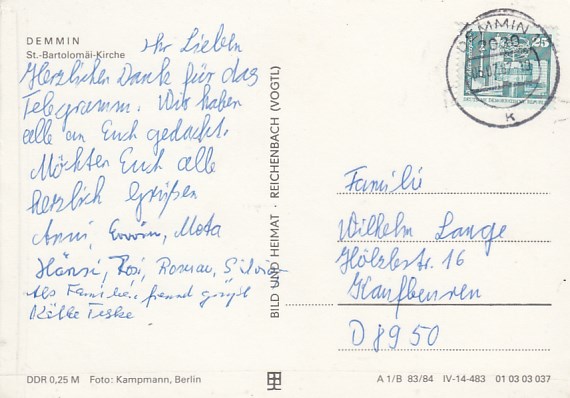 DEMMIN
St.-Bartolomäi-Kirche
Ihr Lieben
Herzlichen Dank für das
Telegramm. Wir haben
alle an Euch gedacht.
Möchten Euch alle
herzlich Grüßen
Anni, Erwin, Meta
Hänsi, Rosi, Silvia
Als Familienfreund grüßt
Käthe
BILD UND HEIMAT · REICHENBACH (VOGTL)
DEMMIN
2030
25
K
Familie
Wilhelm Lange
16
Kaufbeuren
D 8950
DDR 0,25 M Foto: Kampmann, Berlin
A 1/B 83/84 IV-14-483 01 03 03 037